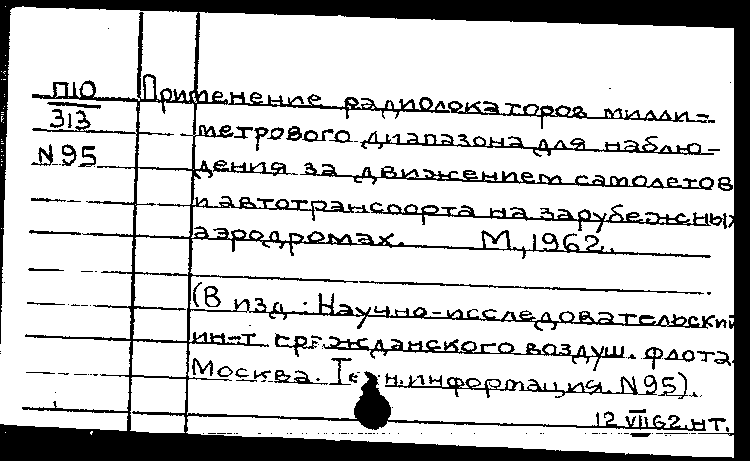 П10
313
N 95
Применение радиолокаторов милли-
метрового диапазона для наблю-
дения за движением самолетов
и автотранспорта на зарубежных
аэродромах. М, 1962.
(В изд.: Научно-исследовательский
ин-т гражданского воздуш. флота.
Москва. Техн. информация. N 95).
12 VII 62. нт.